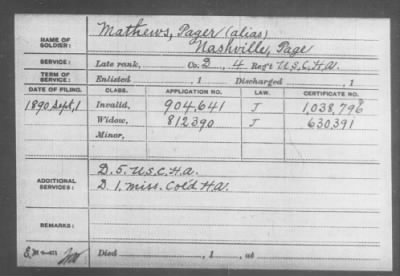 Mathews, Pager (alias)
NAME OF SOLDIER: Nashville, Page
SERVICE: Late rank, Co. D, 4 Reg't U.S.C.H.A.
TERM OF SERVICE: Enlisted , 1 Discharged , 1
DATE OF FILING. CLASS. APPLICATION NO. LAW. CERTIFICATE NO.
1890 Sept, 1 Invalid, 904,641 J 1,038,796
Widow, 812390 J 630,391
Minor,
D. 5. U.S.C.H.A.
ADDITIONAL SERVICES: D. 1. Miss. Col'd H.A.
REMARKS:
Died , 1 , at